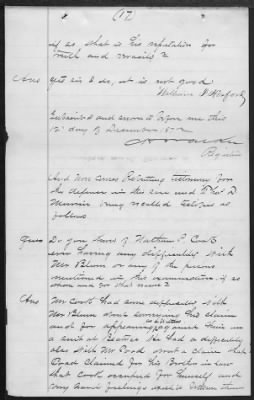 (17
if so, what is his reputation for
truth and veracity?
Ans Yes sir I do, it is not good
William H.
Subscribed and sworn to before me this
12" day of December 1872
Register
And now comes Rebutting testimony for
the defence in this case and Thos D.
being recalled testifies as
follows
Ques Do you know of Nathan P. Cook
ever having any difficulty with
Mr Blum or any of the persons
mentioned in this if so
when and for what cause?
Ans Mr Cook had some difficulty with
Mr Blum about his claim
and for as a witness
a suit at Beaver He had a difficulty
also with Mr Coad about a claim that
Coad Claimed for his Brother in law
that Cook occupied for himself and
feelings between them